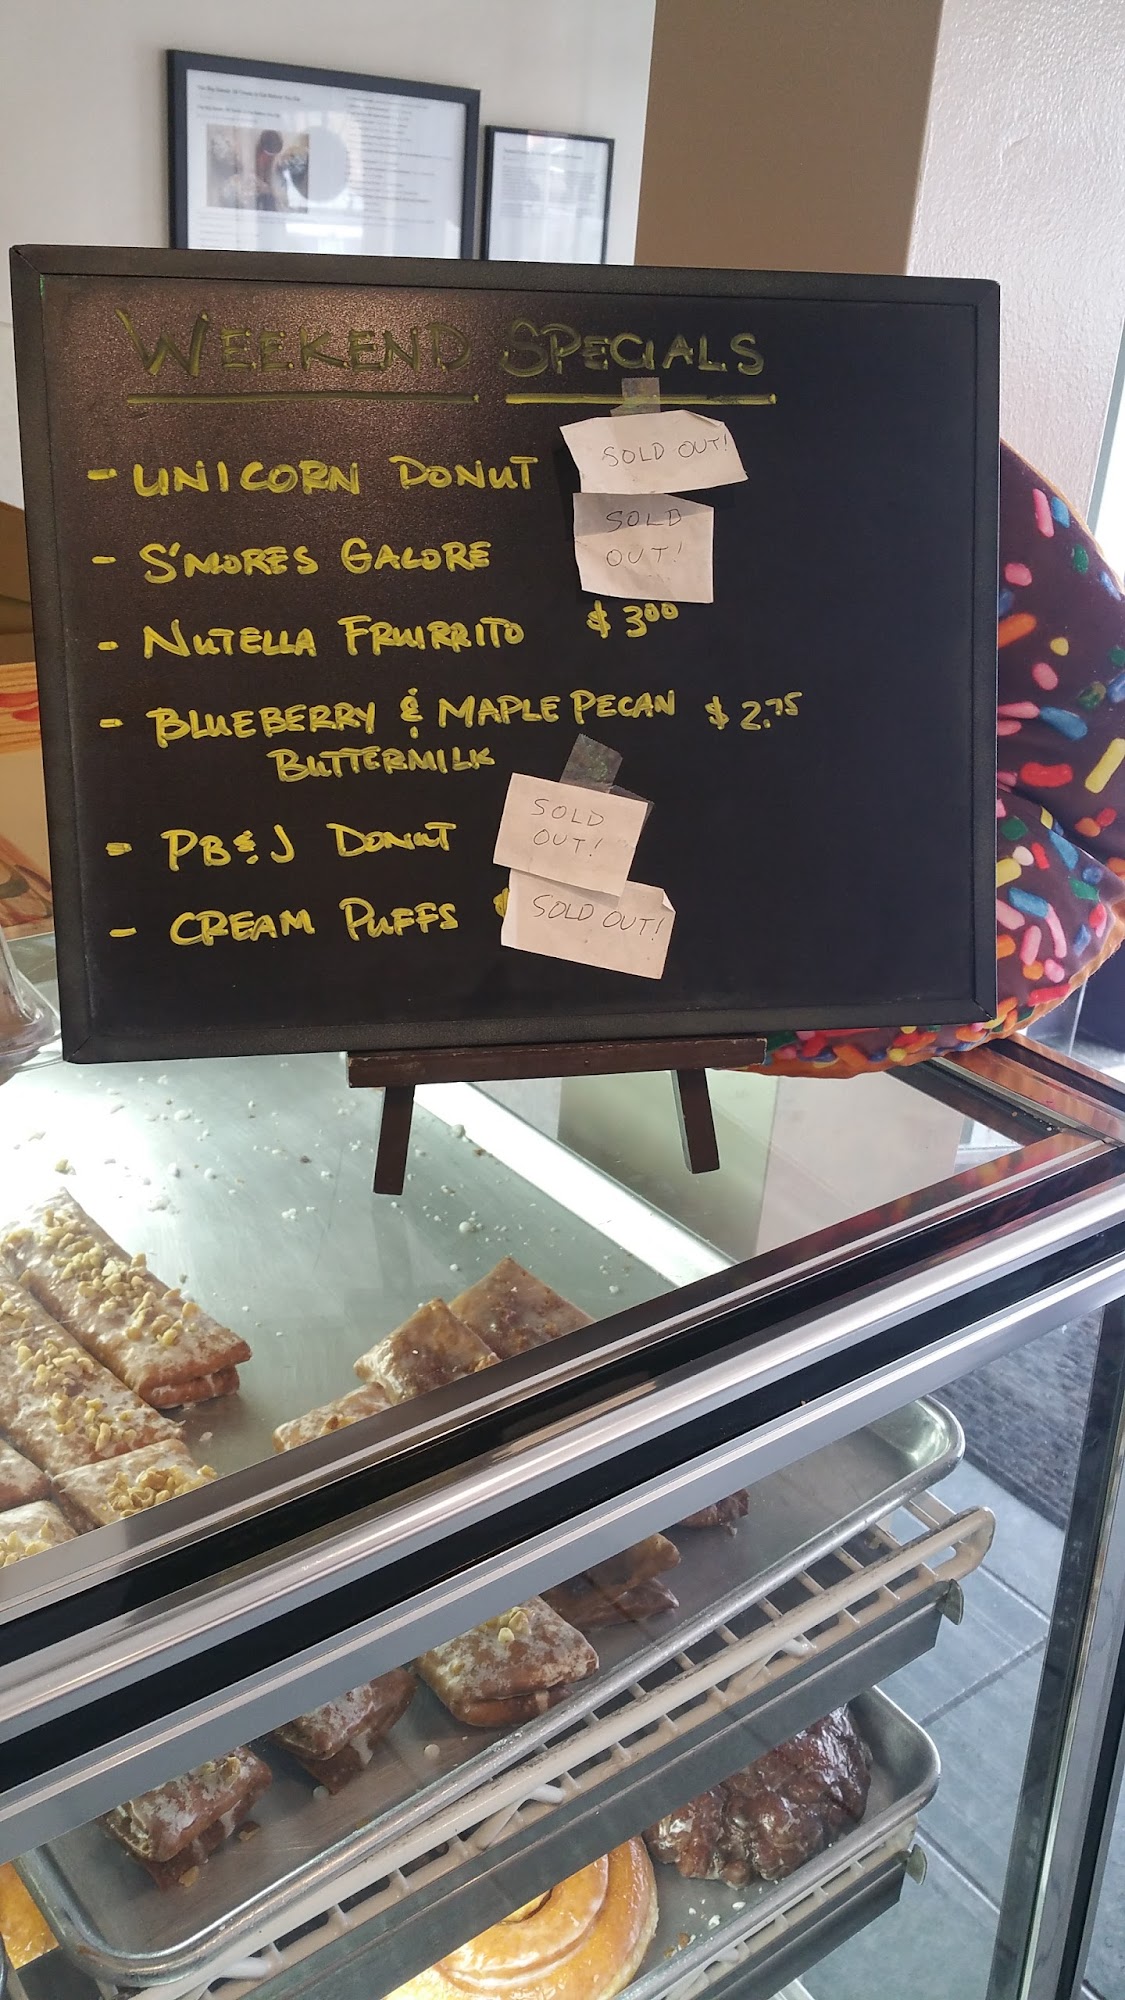 WEEKEND SPECIALS
- UNICORN DONUT SOLD OUT!
- S'MORES GALORE SOLD
OUT!
- NUTELLA FRUIRRITO $3.00
- BLUEBERRY & MAPLE PECAN $2.75
BUTTERMILK
- PB&J DONUT SOLD
OUT!
- CREAM PUFFS SOLD OUT!